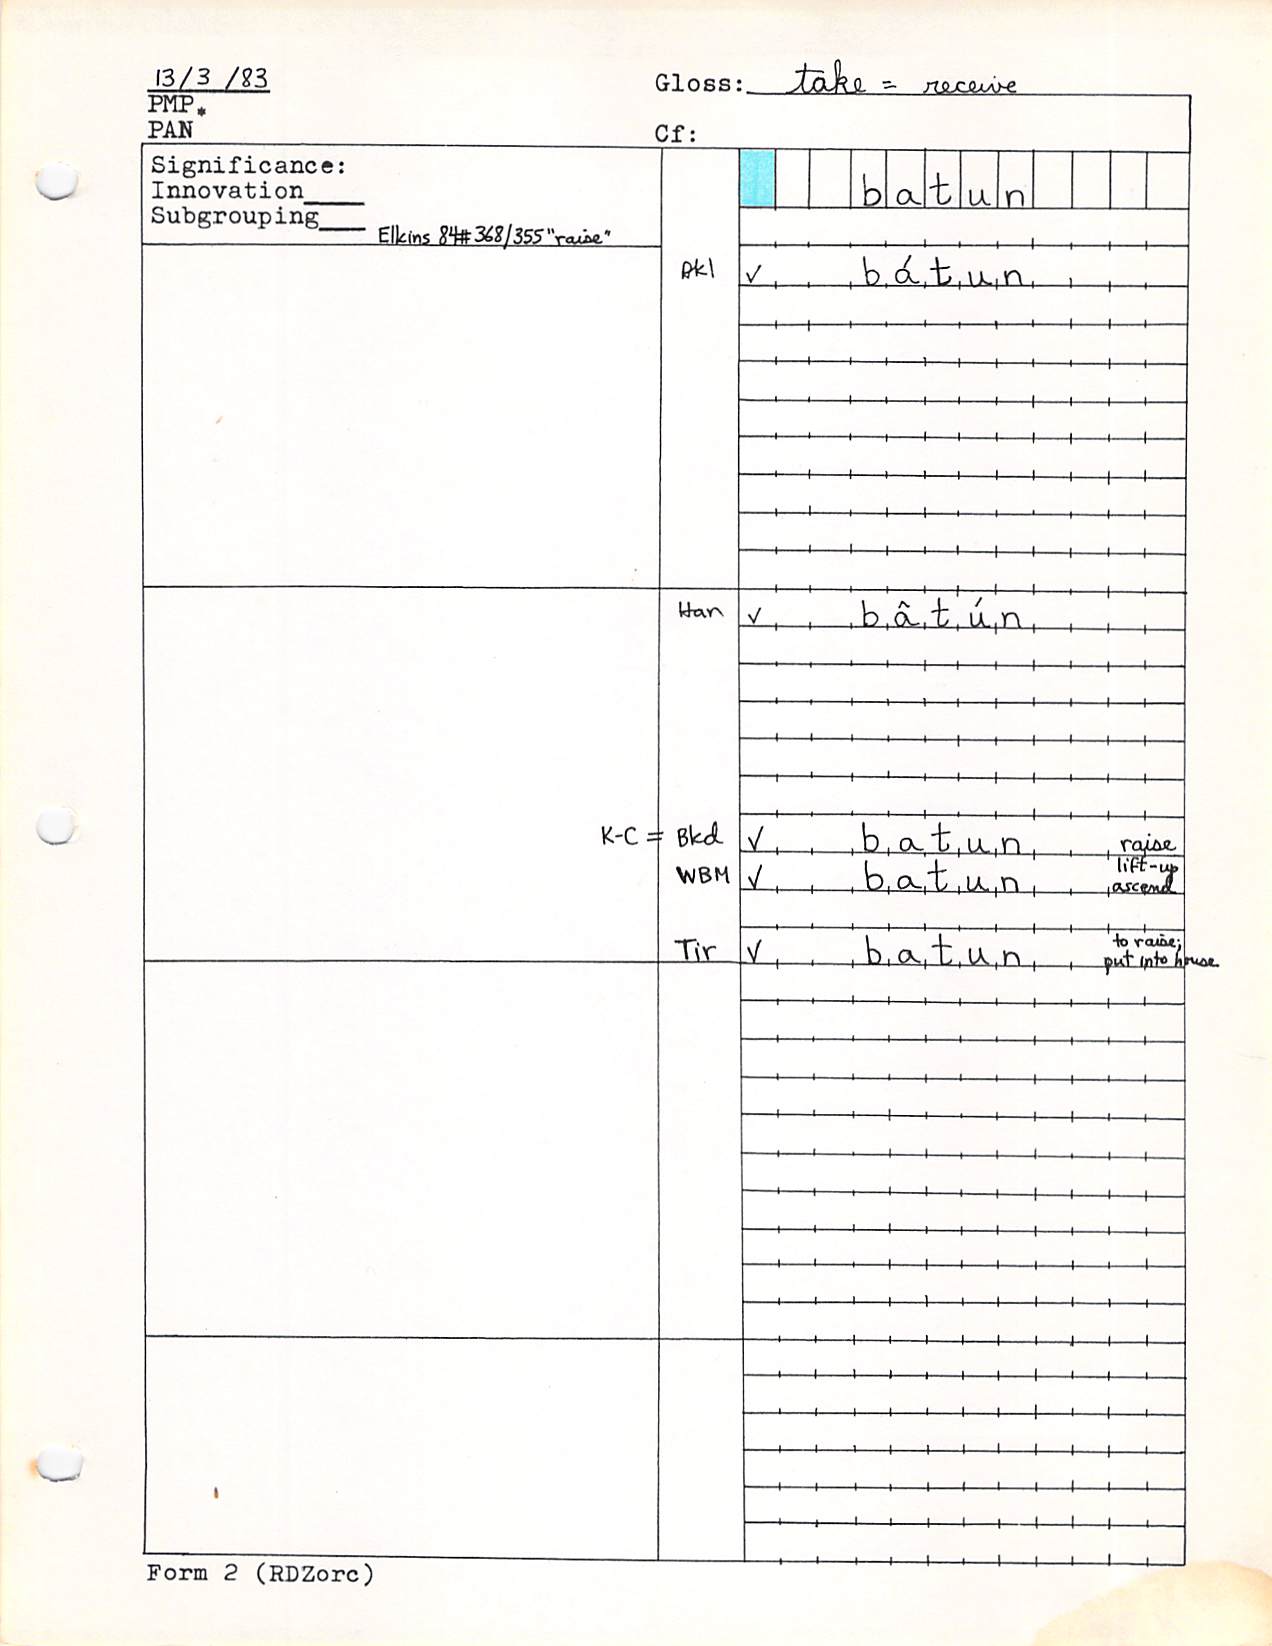 13/3 /83
Gloss: take = receive
PMP*
PAN
Cf:
Significance:
Innovation____
Subgrouping____
Elkins 84#368/355 "raise"
batun
Akl ✓ bátun
Han ✓ bâtún
K-C = Bkd ✓ batun raise
WBM ✓ batun lift-up
ascend
Tir ✓ batun to raise;
put into house
Form 2 (RDZorc)